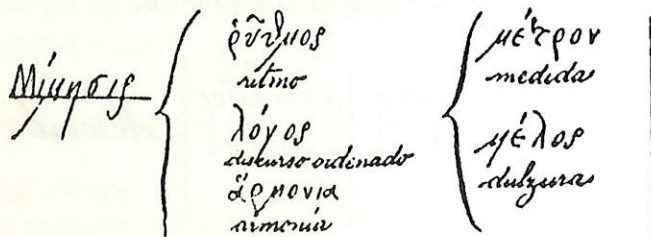 Μίμησις
ῥῦθμος
ritmo
λόγος
discurso ordenado
ἁρμονία
armonía
μέτρον
medida
μέλος
dulzura